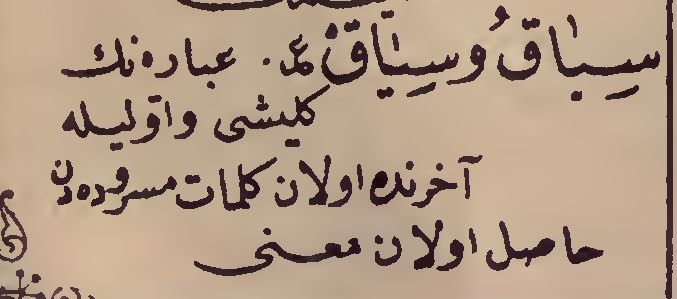 سِبَاقُ وسِيَاقْ ع. عباره‌نك
كليشى واوليله
آخرنده اولان كلمات مسروده‌دن
حاصل اولان معنى